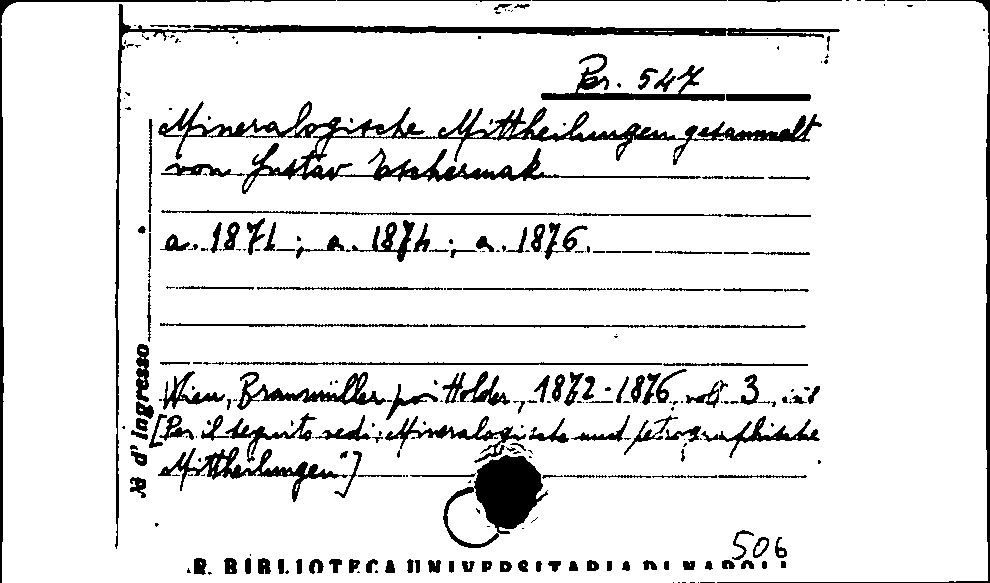 Per. 547
Mineralogische Mittheilungen gesammelt
von Gustav Tschermak
a. 1871 ; a. 1874 ; a. 1876.
Wien, Braumüller poi Holder, 1872-1876, voll. 3, in 8
[Per il seguito vedi: "Mineralogische und petrographische
Mittheilungen"]
d'ingresso
506
R. BIBLIOTECA UNIVERSITARIA DI NAPOLI